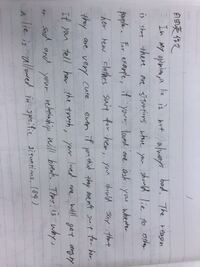 自由英作文
In my opinion, lie is not always bad. The reason
is that there are situations when you should lie to other
people. For example, if your loved one ask you whether
her new clothes suit for her, you should say that
they are very nice even if you think they aren't suit for her.
If you tell her the truth, your loved one will get angry
or sad and your relationship will break. This is why,
a lie is allowed in specific situations. (84)